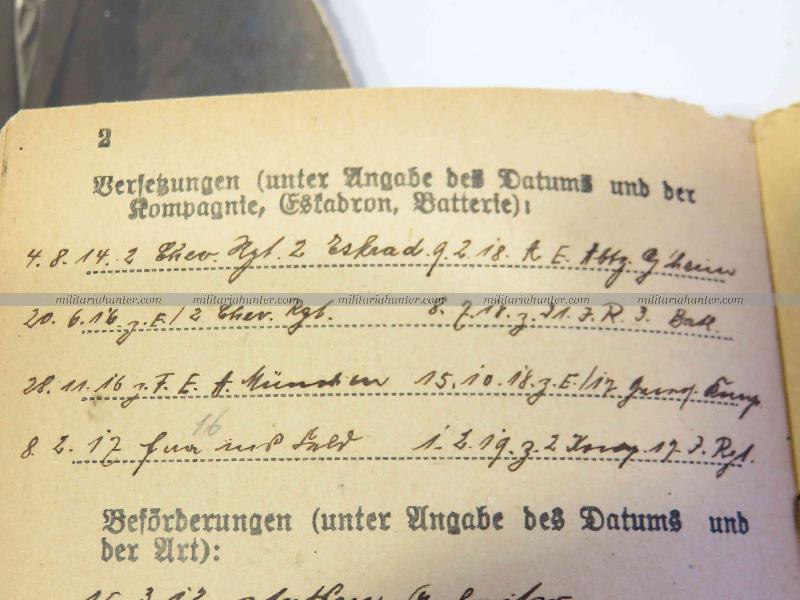 2
Versetzungen (unter Angabe des Datums und der
Kompagnie, Eskadron, Batterie):
4. 8. 14. 2 Chev. Rgt. 2 Eskrad. 9. 2. 18. A. E. Abtg.
militariahunter.com militariahunter.com militariahunter.com militariahunter.com militariahunter.com militariahunter.com
20. 6. 16. z. E/2 Chev. Rgt. 8. 7. 18. z. 31. J. R. 3. Batl.
28. 11. 16 z. F. E. A. München 15. 10. 18. z. E/17
16
8. 2. 17 ins Feld 1. 2. 19. z. 2 17. J. Rgt.
Beförderungen (unter Angabe des Datums und
der Art):